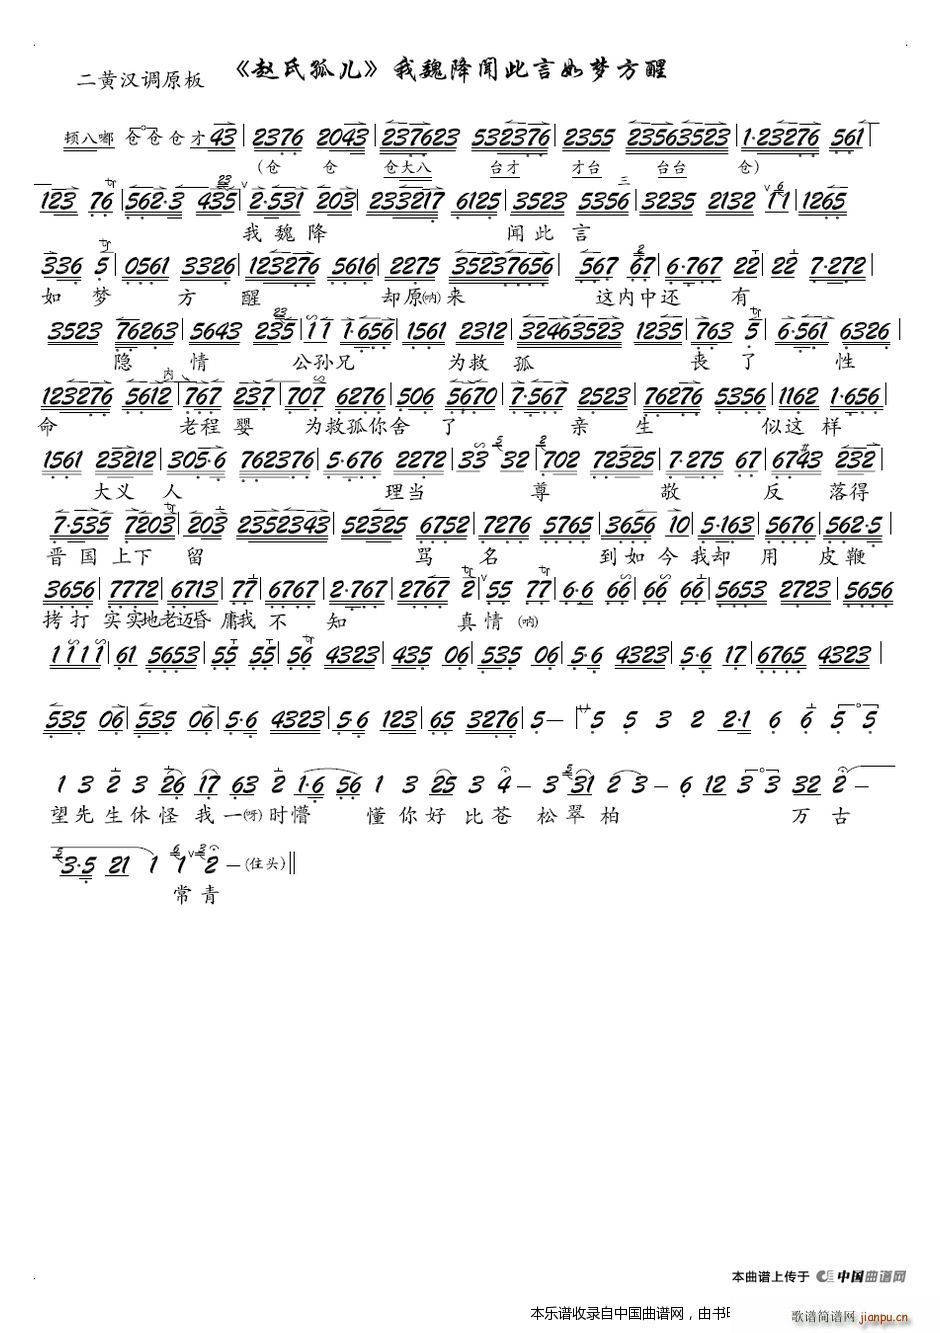 《赵氏孤儿》我魏降闻此言如梦方醒
二黄汉调原板
顿八嘟 仓 仓 仓 才 43 | 2376 2043 | 237623 532376 | 2355 23563523 | 1·23276 561 |
(仓 仓 仓大八 台才 才台 台台 仓)
123 76 | 562·3 435 | 2·531 203 | 233217 6125 | 3523 5356 | 3235 2132 11 | 1265
我 魏 降 闻 此 言
336 5 | 0561 3326 | 123276 5616 | 2275 35237656 | 567 67 | 6·767 22 | 22 7·272 |
如 梦 方 醒 却原(呐)来 这内中还 有
3523 76263 | 5643 235 | 11 1·656 | 1561 2312 | 32463523 1235 | 763 5 | 6·561 6326 |
隐 情 公孙兄 为救 孤 丧 了 性
123276 5612 | 767 237 | 707 6276 | 506 5670 | 7·567 2523 | 76276 5356 | 1162 1·656 |
命 老程 婴 为救孤你舍 了 亲 生 似这 样
1561 23212 | 305·6 762376 | 5·676 2272 | 33 32 | 702 72325 | 7·275 67 | 6743 232 |
大义 人 理当 尊 敬 反 落得
7·535 7203 | 203 2352343 | 52325 6752 | 7276 5765 | 3656 10 | 5·163 | 5676 | 562·5 |
晋国上下 留 骂 名 到如今我却 用 皮鞭
3656 | 7772 | 6713 | 77 | 6767 | 2·767 | 2767 2 | 55 77 | 6·6 66 | 66 66 | 5653 2723 | 5656
拷打 实实地老迈昏 庸我 不 知 真情(呐)
1111 | 61 5653 | 55 55 | 56 4323 | 435 06 | 535 06 | 5·6 4323 | 5·6 17 | 6765 4323 |
535 06 | 535 06 | 5·6 4323 | 5·6 123 | 65 3276 | 5— | サ5 5 3 2 2·1 6 6 5 5
1 3 2 3 26 17 63 2 1·6 56 1 3 25 3 4 — 3 31 2 3 — 6 12 3 3 32 2 —
望先生休怪 我一(呀)时懵 懂你好比苍 松翠柏 万 古
3·5 21 1 1 2 —(住头)‖
常 青
本曲谱上传于 中国曲谱网
本乐谱收录自中国曲谱网，由书
歌谱简谱网 jianpu.cn